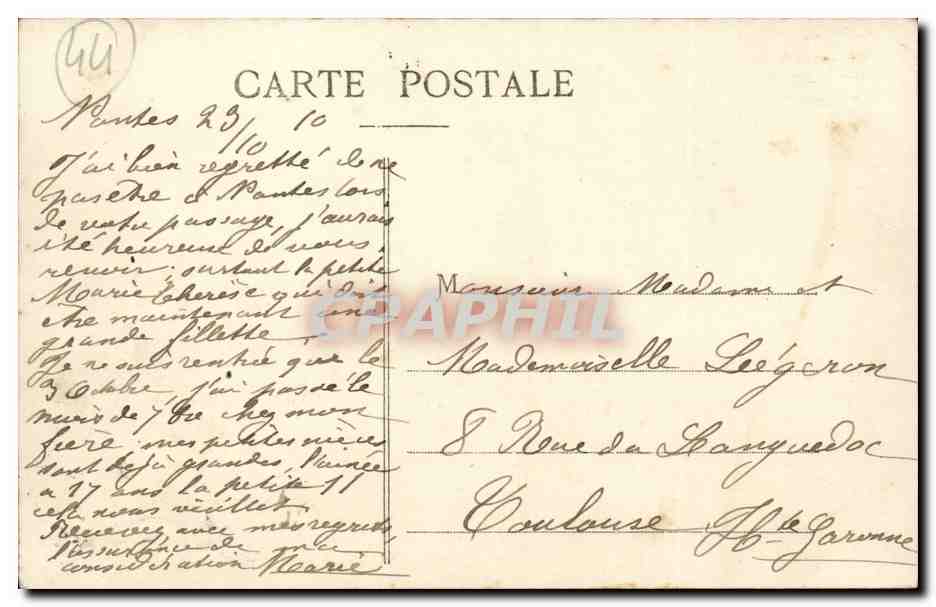 44
CARTE POSTALE
Nantes 23/10 10
J'ai bien regretté de ne
pas être à Nantes lors
de votre passage, j'aurais
été heureuse de vous
revoir, surtout la petite
Marie Thérèse qui doit
être maintenant une
grande fillette.
Je ne suis rentrée que le
3 Octobre, j'ai passé le
mois de 7bre chez mon
frère mes petites nièces
sont déjà grandes, l'ainée
a 17 ans la petite 11
cela nous vieillit
Recevez avec mes regrets,
l'assurance de ma
considération Marie
Monsieur Madame et
Mademoiselle Légeron
8 Rue du Languedoc
Toulouse Hte Garonne
CPAPHIL